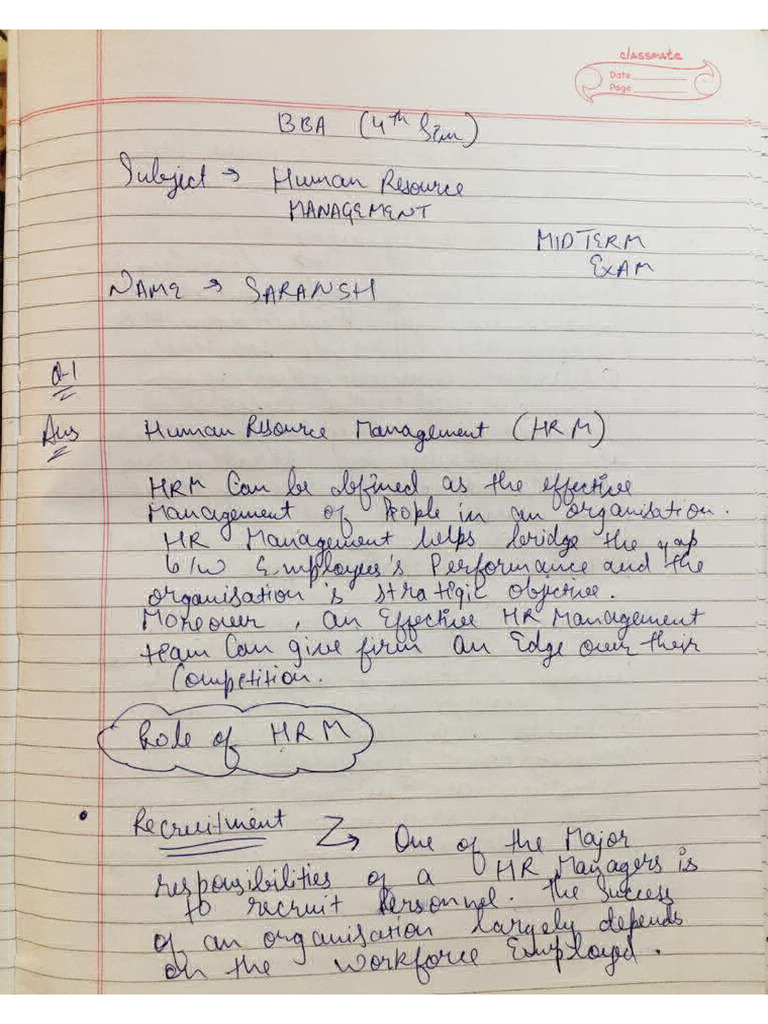 classmate
Date
Page
BBA (4th Sem)
Subject → Human Resource
MANAGEMENT
MIDTERM
EXAM
NAME → SARANSH
Q-1
Ans Human Resource Management (HRM)
HRM Can be defined as the effective
Management of People in an organisation.
HR Management helps bridge the gap
b/w Employees's Performance and the
organisation's strategic objective.
Moreover, an Effective HR Management
team Can give firm an Edge over their
Competition.
Role of HRM
• Recruitment → One of the Major
responsibilities of a HR Managers is
to recruit Personnel. The Success
of an organisation largely depends
on the workforce Employed.